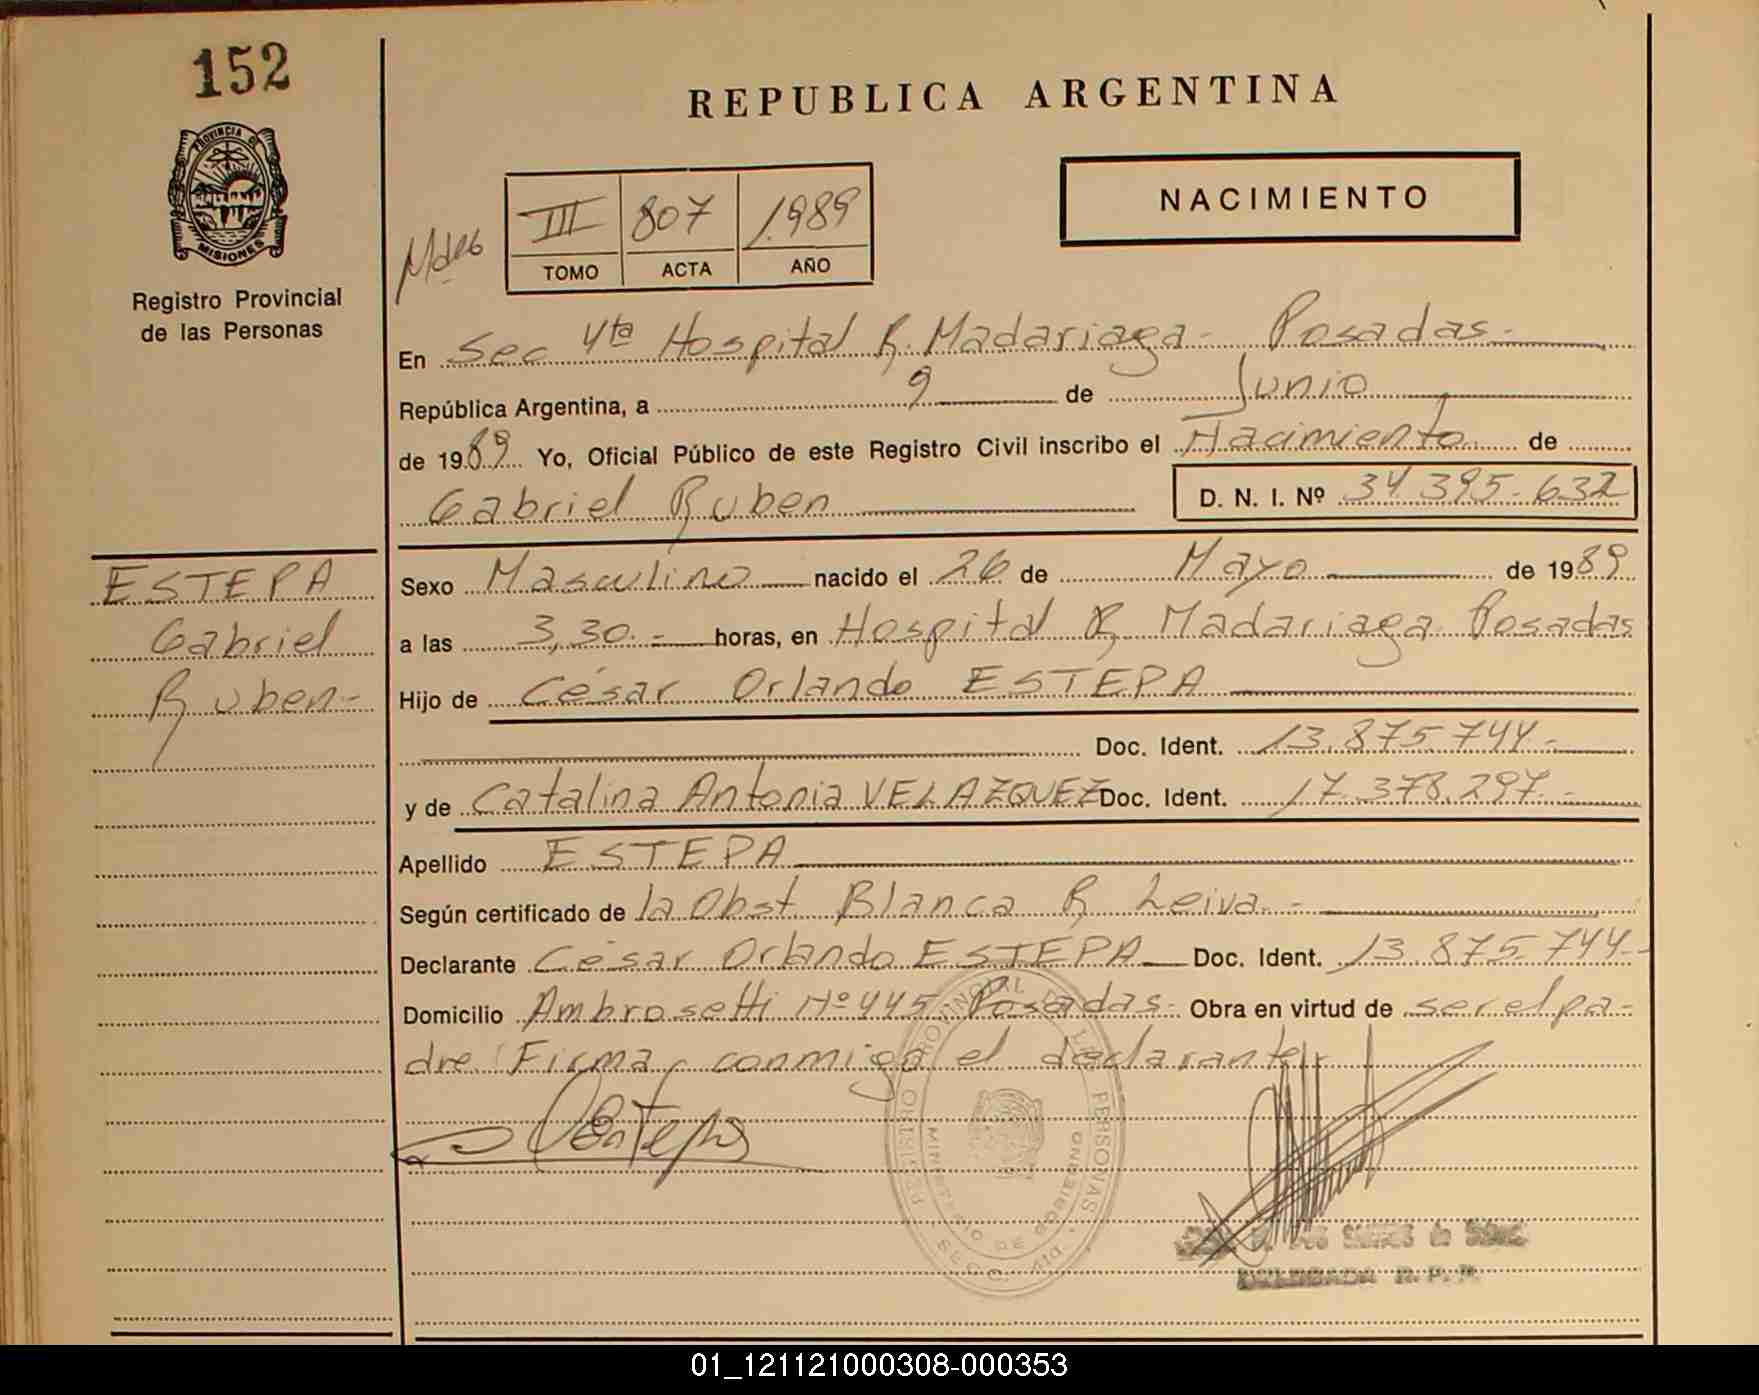 152
REPUBLICA ARGENTINA
PROVINCIA DE MISIONES
Registro Provincial
de las Personas
III 807 1989
TOMO ACTA AÑO
NACIMIENTO
En Sec 4ta Hospital R. Madariaga - Posadas -
República Argentina, a 9 de Junio
de 1989 Yo, Oficial Público de este Registro Civil inscribo el Nacimiento de
Gabriel Ruben D. N. I. Nº 34 395.632
ESTEPA
Gabriel
Ruben -
Sexo Masculino nacido el 26 de Mayo de 1989
a las 3,30.- horas, en Hospital R. Madariaga Posadas
Hijo de César Orlando ESTEPA
Doc. Ident. 13.875.744.-
y de Catalina Antonia VELAZQUEZ Doc. Ident. 17.378.297.-
Apellido ESTEPA
Según certificado de la Obst Blanca R. Leiva.-
Declarante César Orlando ESTEPA Doc. Ident. 13.875.744.-
Domicilio Ambrosetti Nº 445 Posadas - Obra en virtud de ser el pa-
dre. Firma conmigo el declarante
REGISTRO PROVINCIAL DE LAS PERSONAS
MINISTERIO DE GOBIERNO
SECC. 4ta.
DELEGADA R. P. P.
01_121121000308-000353